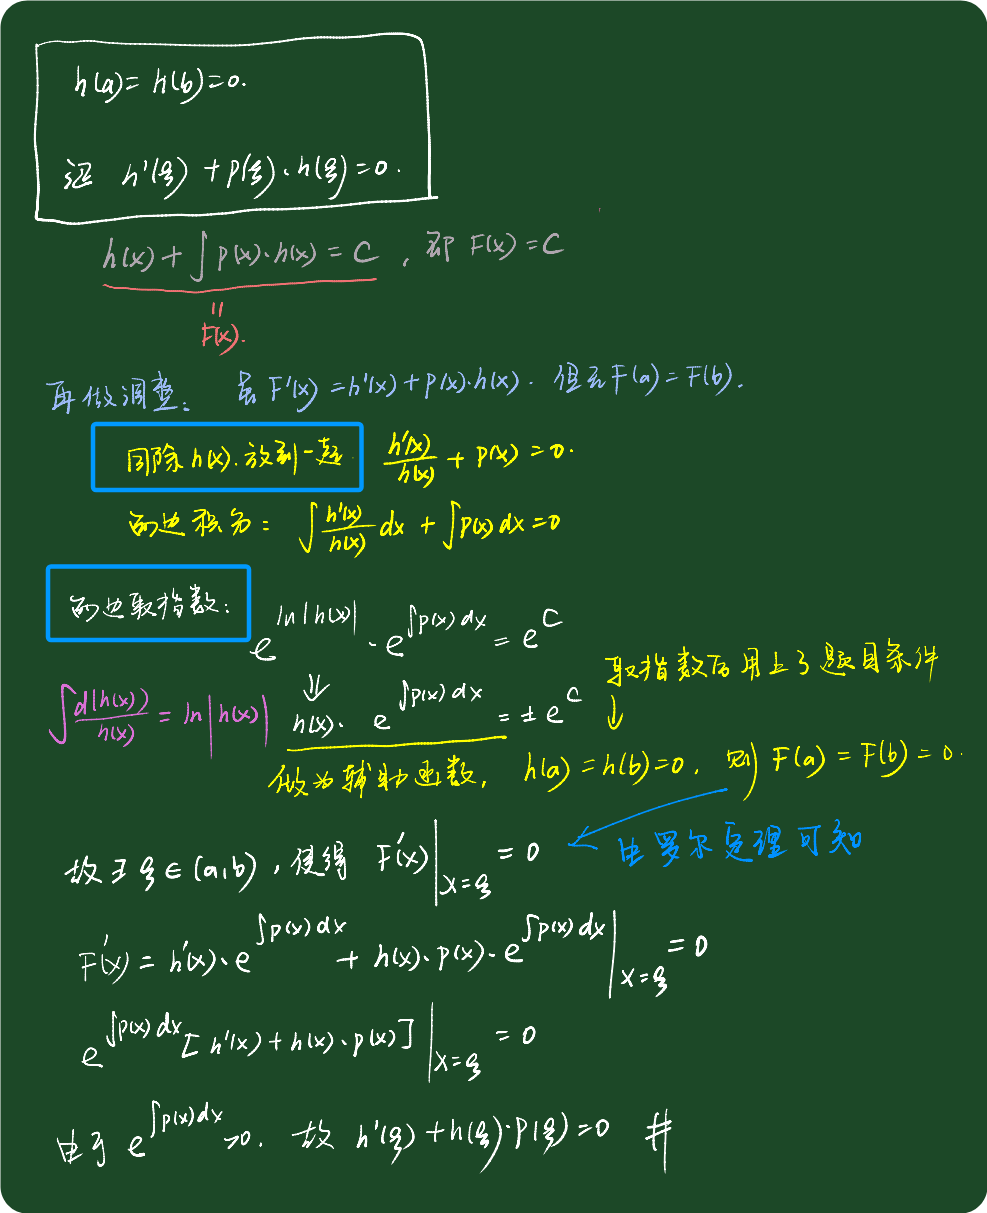 h(a)= h(b)=0.
证 h'(ξ) + p(ξ)·h(ξ)=0.
h(x) + ∫ p(x)·h(x) = C , 即 F(x) = C
=
F(x).
再做调整: 虽 F'(x) = h'(x) + p(x)·h(x). 但无 F(a) = F(b).
同除 h(x).放到一起 h'(x)/h(x) + p(x) = 0.
两边积分: ∫ h'(x)/h(x) dx + ∫p(x) dx = 0
两边取指数: e^{ln|h(x)|} · e^{∫p(x) dx} = e^C
取指数后用上了题目条件
∫ d(h(x))/h(x) = ln|h(x)| ⇓ h(x)· e^{∫p(x) dx} = ± e^C ↓
做为辅助函数, h(a) = h(b)=0, 则 F(a) = F(b) = 0.
← 由罗尔定理可知
故∃ξ∈(a,b), 使得 F'(x)|_{x=ξ} = 0
F'(x) = h'(x)·e^{∫p(x) dx} + h(x)·p(x)·e^{∫p(x) dx}|_{x=ξ} = 0
e^{∫p(x) dx}[h'(x) + h(x)·p(x)]|_{x=ξ} = 0
由于 e^{∫p(x)dx} >0. 故 h'(ξ) + h(ξ)·p(ξ)=0 #